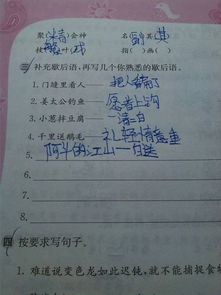 聚(精)会神 名(副)其(其)
按 叶(戏) 指( )画( )
三 补充歇后语,再写几个你熟悉的歇后语。
1. 门缝里看人——把人看扁了
2. 姜太公钓鱼——愿者上钩
3. 小葱拌豆腐——一清二白
4. 千里送鹅毛——礼轻情意重
5. 阿斗的江山——白送
四 按要求写句子。
1. 难道说变色龙如此迟钝,就不能捕捉食